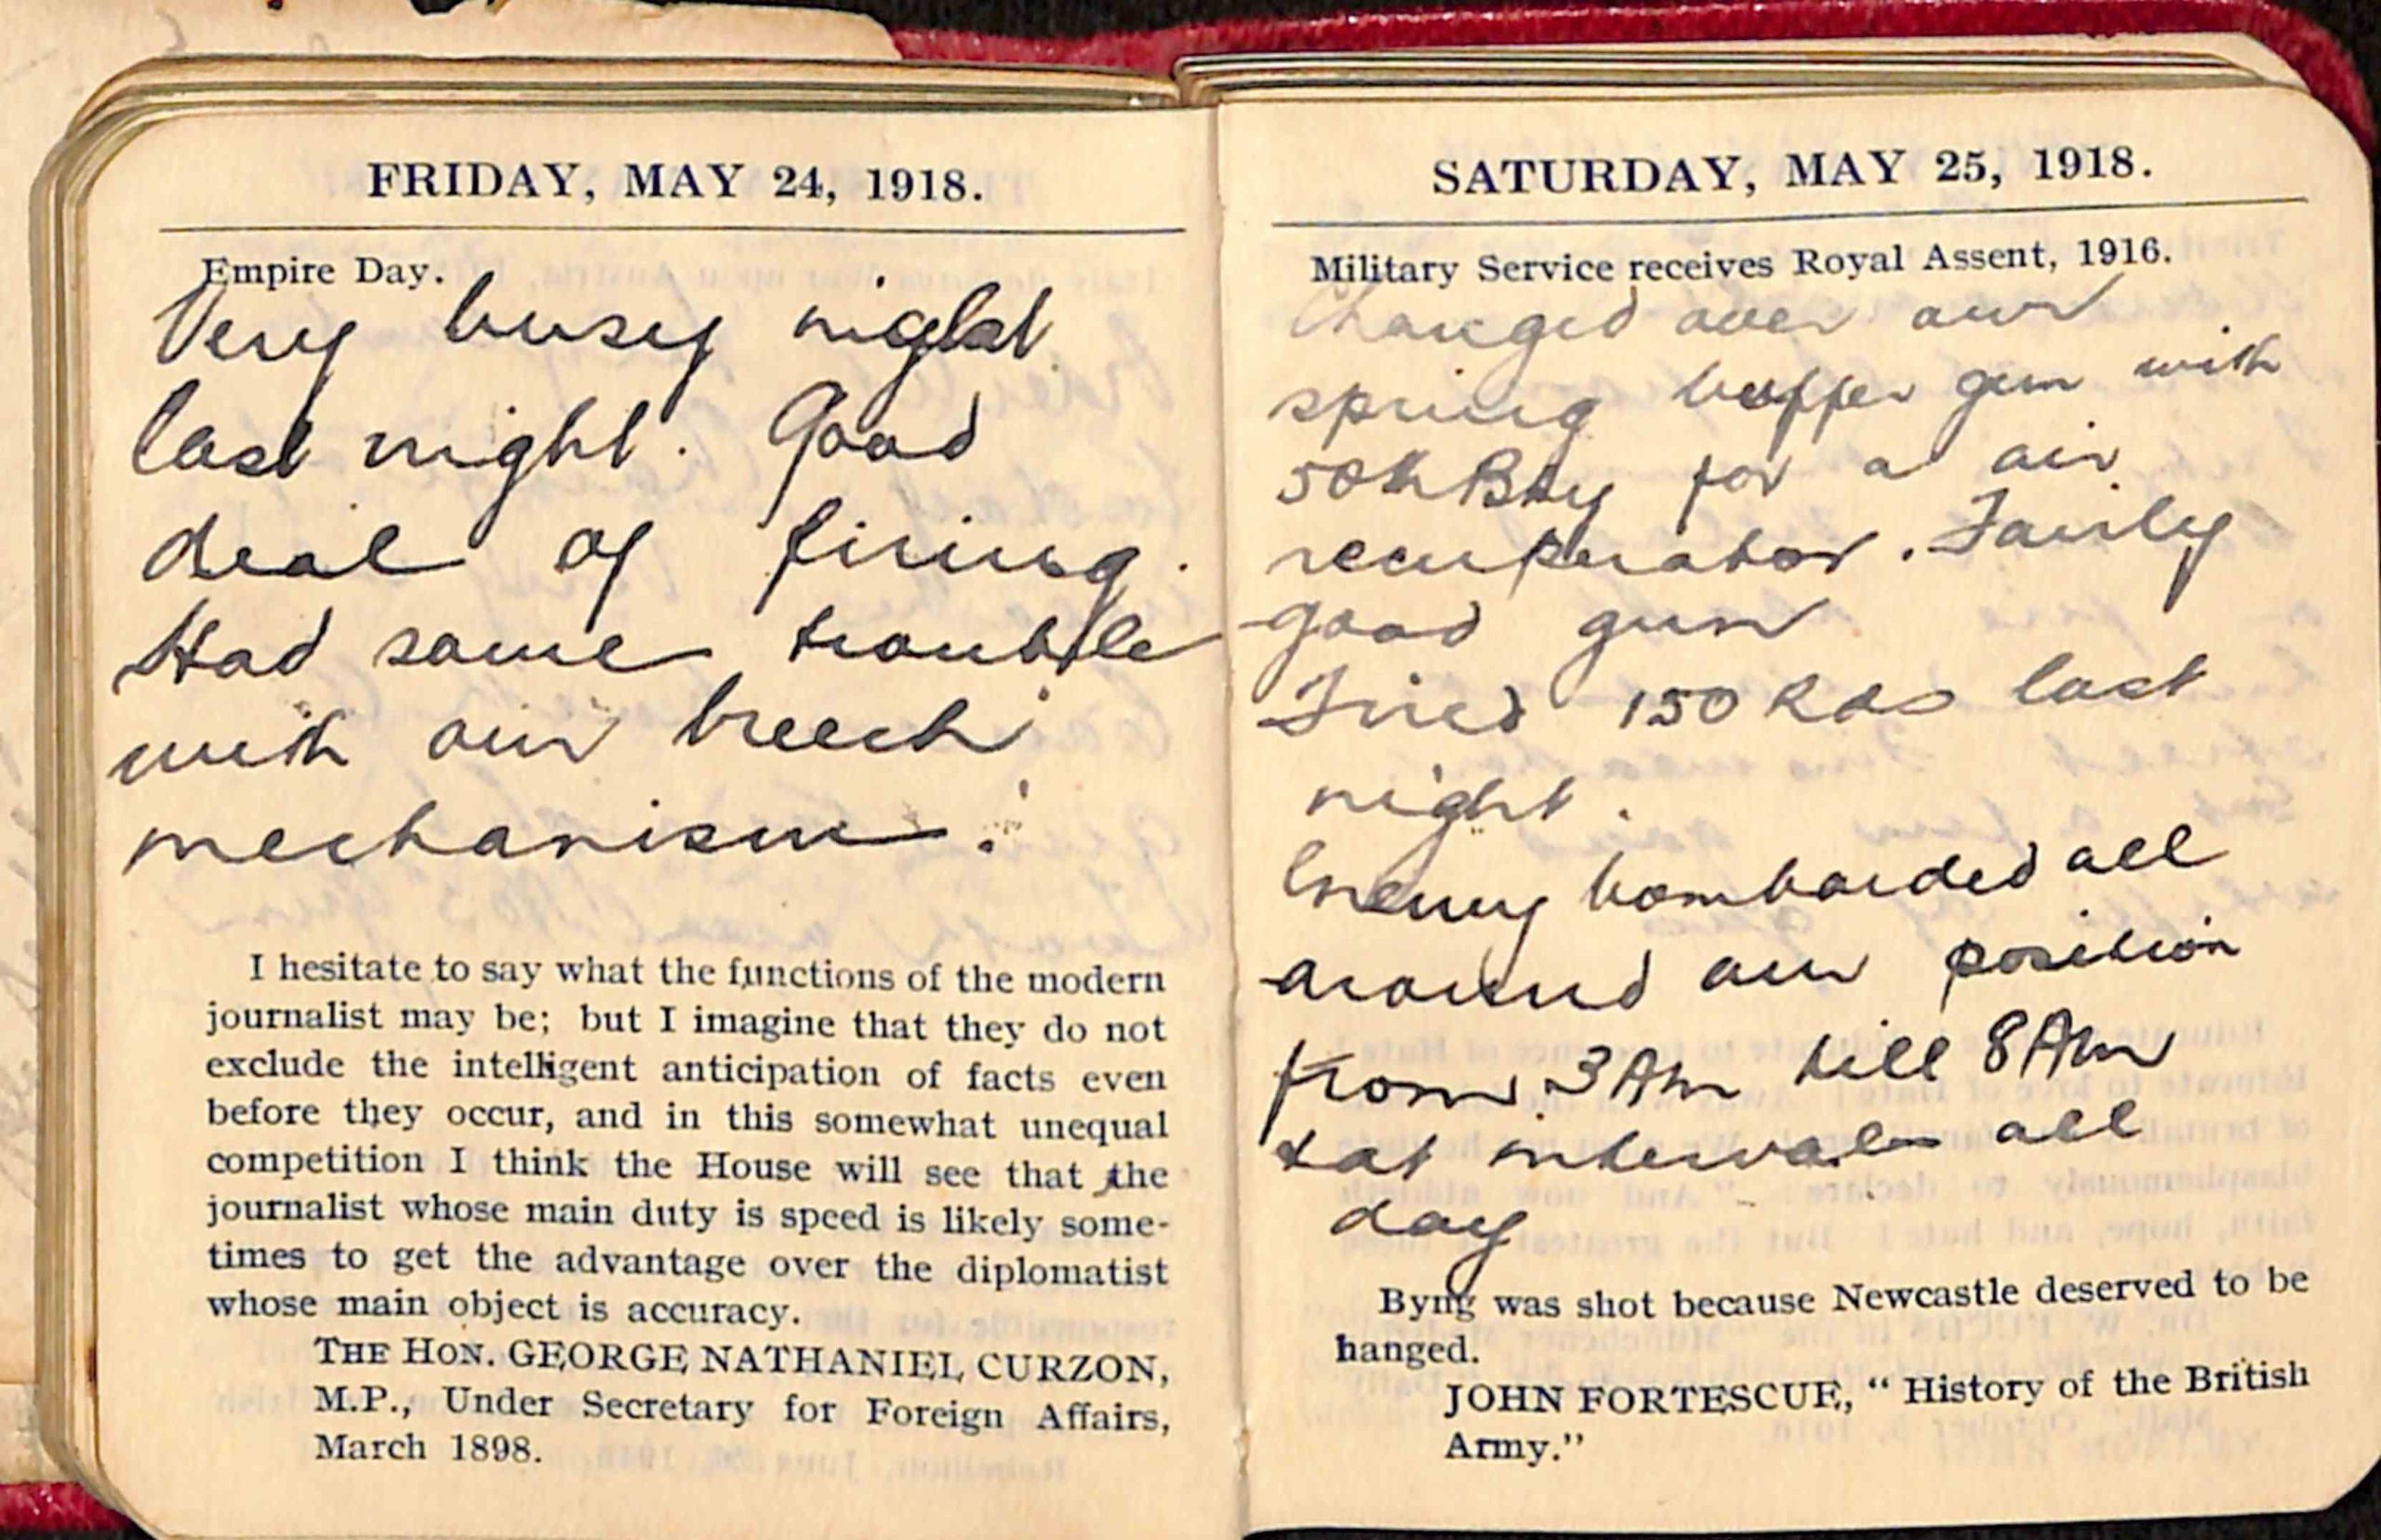 FRIDAY, MAY 24, 1918.
Empire Day.
Very busy night
last night. Good
deal of firing.
Had some trouble
with our breech
mechanism.
I hesitate to say what the functions of the modern
journalist may be; but I imagine that they do not
exclude the intelligent anticipation of facts even
before they occur, and in this somewhat unequal
competition I think the House will see that the
journalist whose main duty is speed is likely some-
times to get the advantage over the diplomatist
whose main object is accuracy.
THE HON. GEORGE NATHANIEL CURZON,
M.P., Under Secretary for Foreign Affairs,
March 1898.
SATURDAY, MAY 25, 1918.
Military Service receives Royal Assent, 1916.
Changed over our
spring buffer gun with
50th Bty for a air
recuperator. Fairly
good gun
Fired 150 Rds last
night.
Enemy bombarded all
around our position
from 3 Am till 8 Am
+ at intervals all
day
Byng was shot because Newcastle deserved to be
hanged.
JOHN FORTESCUE, "History of the British
Army."